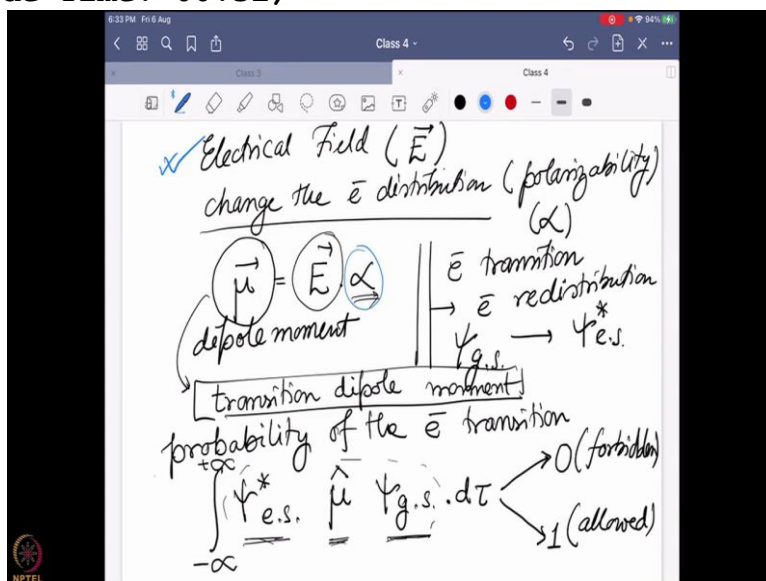 6:33 PM Fri 6 Aug
94%
Class 4
Class 3
Class 4
Electrical Field (E⃗)
change the ē distribution (polarizability)
(α)
μ⃗ = E⃗ . α
dipole moment
ē transition
→ ē redistribution
ψg.s. → ψ*e.s.
transition dipole moment
probability of the ē transition
∫ +∞ -∞ ψ*e.s. μ̂ ψg.s. . dτ
0 (forbidden)
1 (allowed)
NPTEL